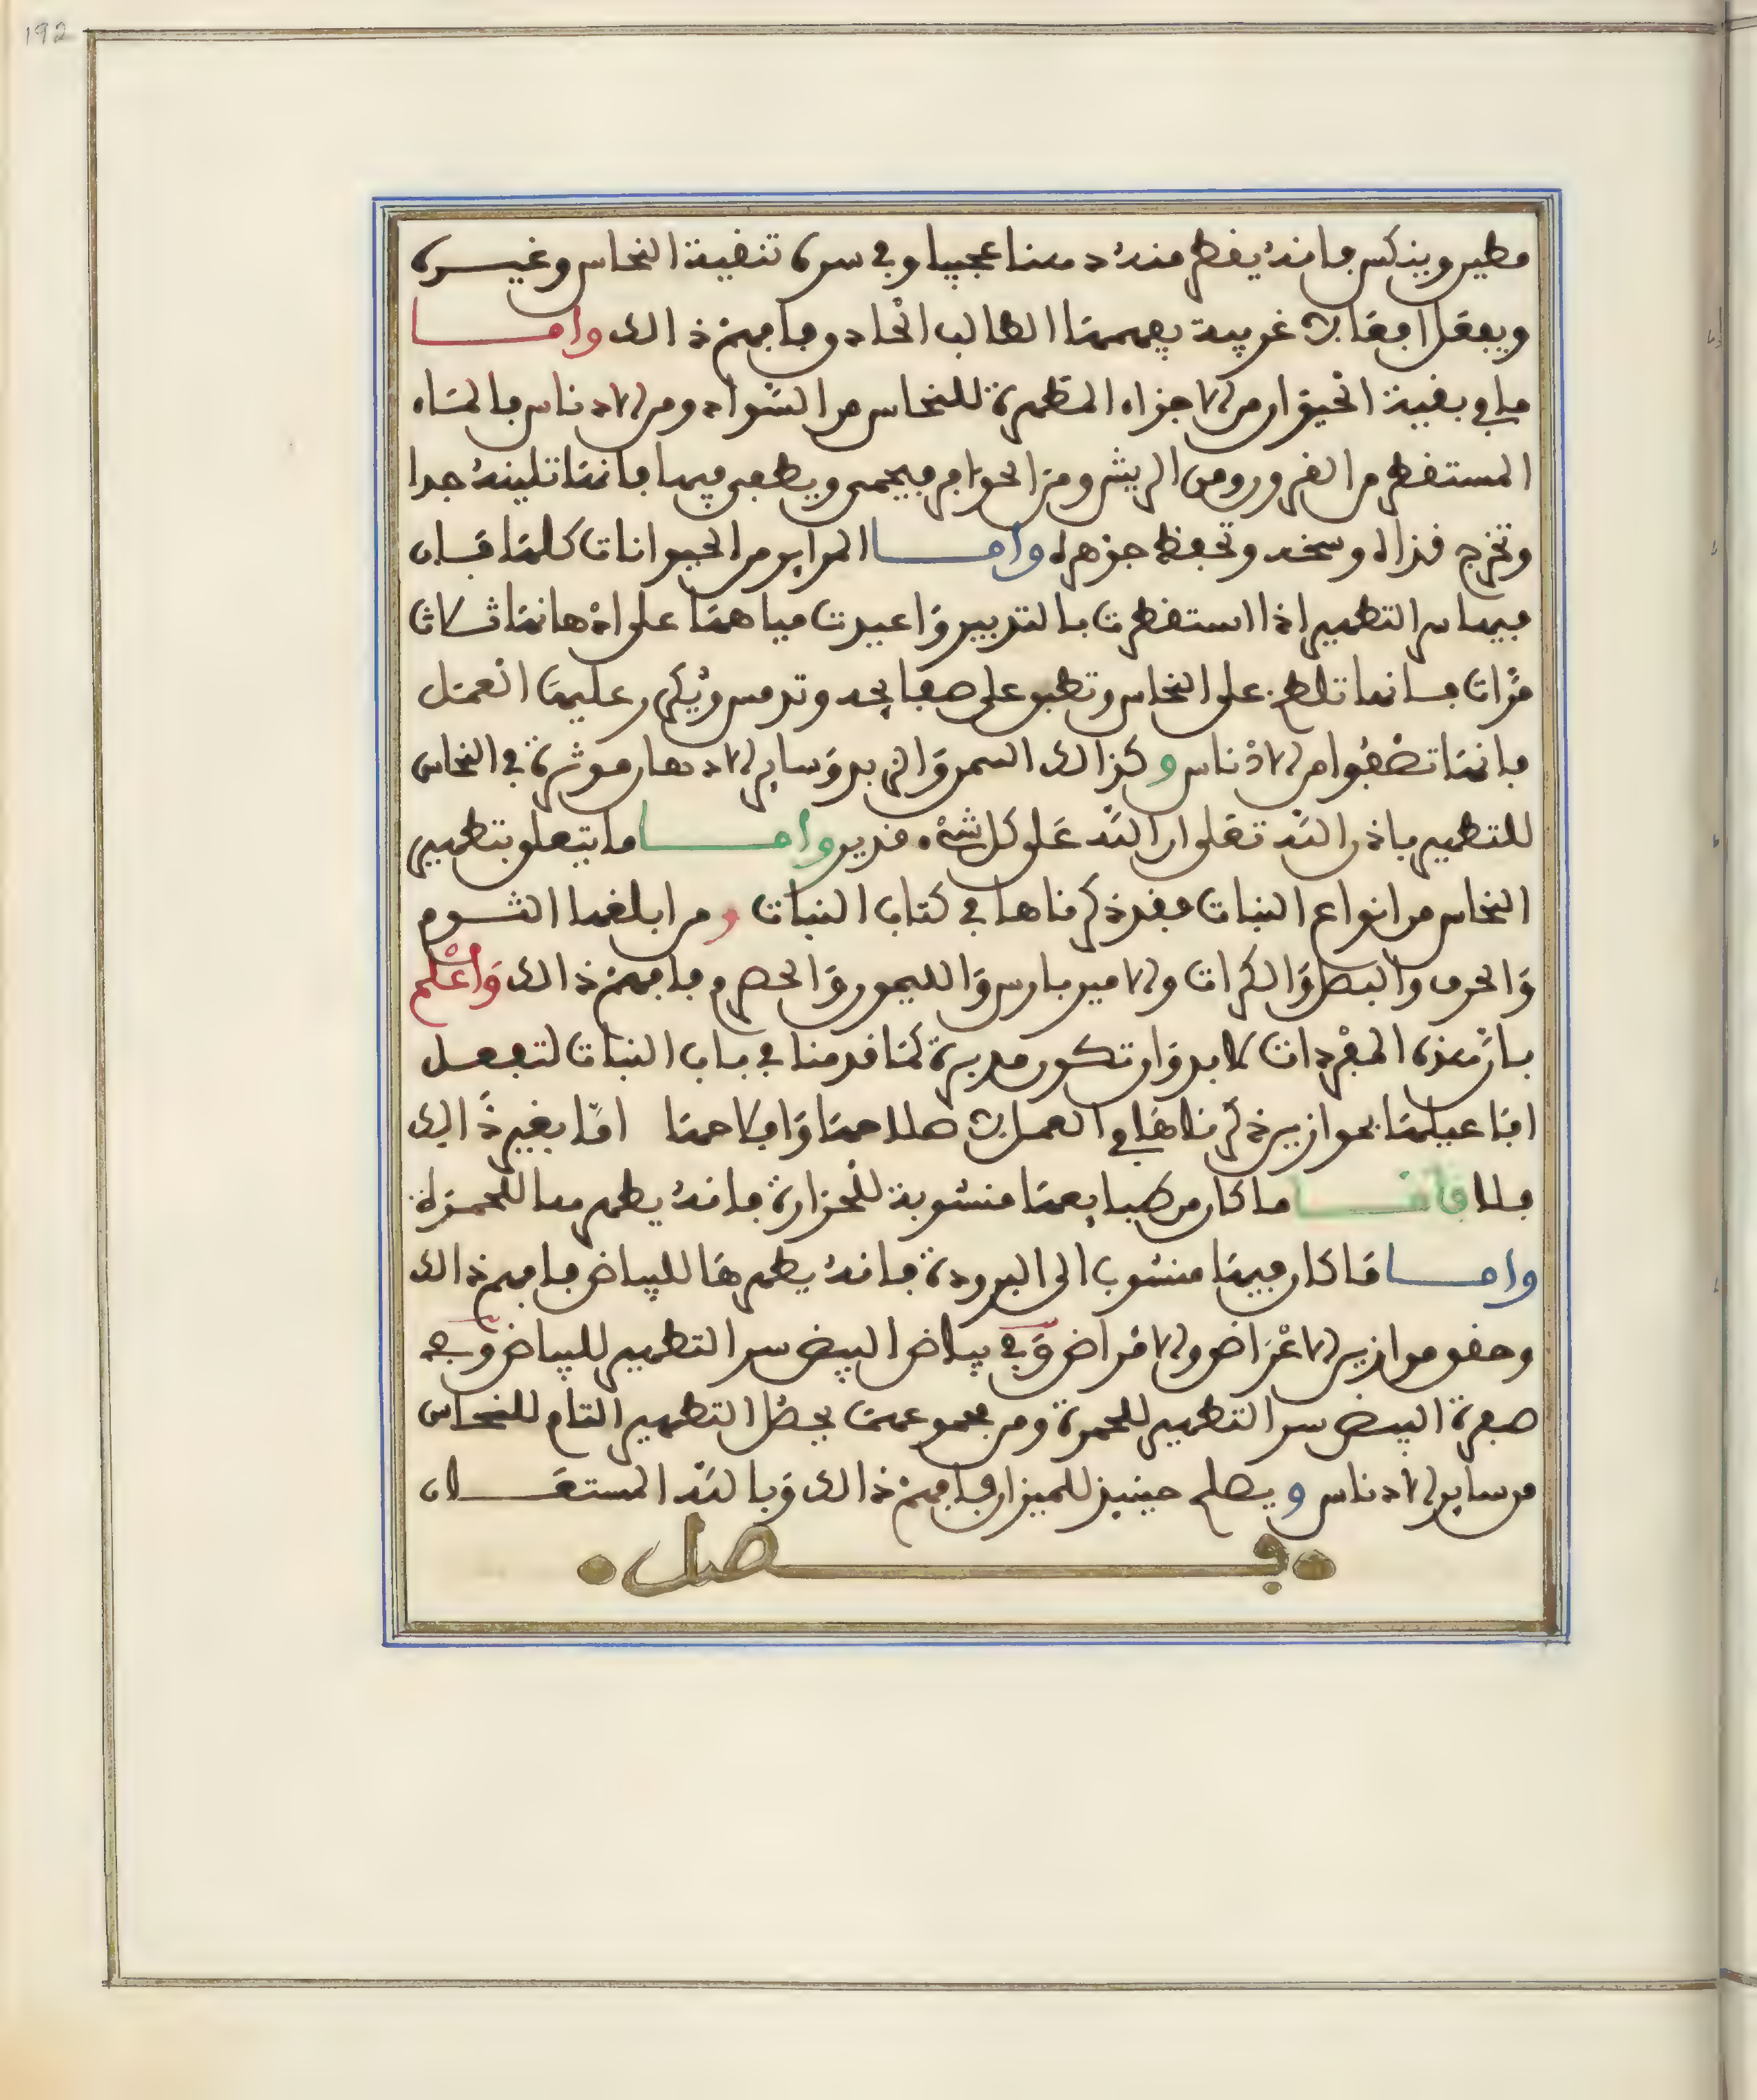 192
مطين وينكس فانه يقطر منه دهنا عجيبا وفي سره تنقية النحاس وغيره
ويفعل افعالا غريبة يفهمها الطالب الحاذق فافهم ذالك واما
ما في بقية الحيوان من الاجزاء المطهرة للنحاس من السواد ومن الادناس فالماء
المستقطر من القرون ومن الريش ومن الحوافر فيحمى ويطفى فيها فانها تلينه جدا
وتخرج قذاه وسخه وتحفظ جوهره واما المراير من الحيوانات كلها فان
فيها سر التطهير اذا استقطرت بالتدبير واعيدت مياهها على ادهانها ثلاث
مرات فانها تلطخ على النحاس وتطبق على صفايحه وترمس ويكرر عليها العمل
فانها تنقيه من الادناس وكذالك السمن والزبد وساير الادهان موثرة في النحاس
للتطهير باذن الله تعلى ان الله على كل شيء قدير واما ما يتعلق بتطهير
النحاس من انواع النبات فقد ذكرناها في كتاب النبات ومن ابلغها الثوم
والحرف والبصل والكراث والامير بارس والليمون والحصرم فافهم ذالك واعلم
بان هذه المفردات لا بد وان تكون مدبرة كما قدمنا في باب النبات لتفعل
افاعيلها بموازين ذكرناها في العمل لاصلاحها وافلاحها اما بغير ذالك
فلا فاما ما كان من طبايعها منسوبة للحرارة فانه يطهرها للحمرة
واما ما كان فيها منسوب الى البرودة فانه يطهرها للبياض فافهم ذالك
وحقق موازين الاعراض والامراض وفي بياض البيض سر التطهير للبياض وفي
صفرة البيض سر التطهير للحمرة ومن مجموعهما يحصل التطهير التام للنحاس
من ساير الادناس ويصلح حينيذ للميزان فافهم ذالك وبالله المستعان
فصل